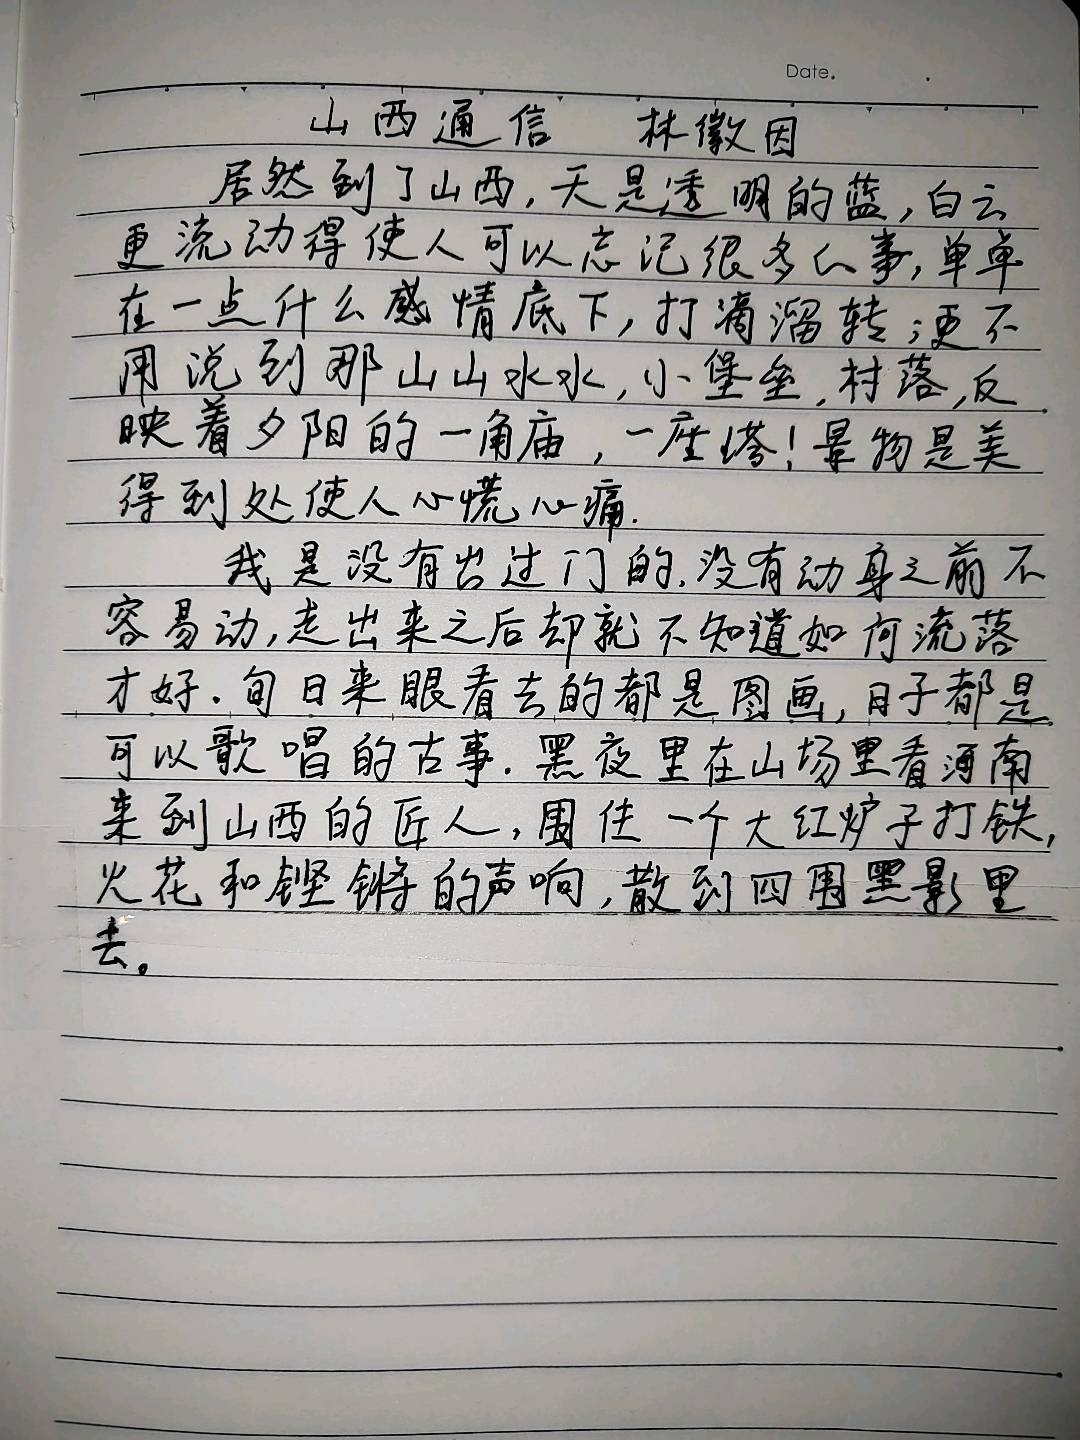 Date.
山西通信 林徽因
居然到了山西，天是透明的蓝，白云
更流动得使人可以忘记很多的事，单单
在一点什么感情底下，打滴溜转；更不
用说到那山山水水，小堡垒，村落，反
映着夕阳的一角庙，一座塔！景物是美
得到处使人心慌心痛.
我是没有出过门的.没有动身之前不
容易动，走出来之后却就不知道如何流落
才好.旬日来眼看去的都是图画，日子都是
可以歌唱的古事.黑夜里在山场里看河南
来到山西的匠人，围住一个大红炉子打铁，
火花和铿锵的声响，散到四围黑影里
去。